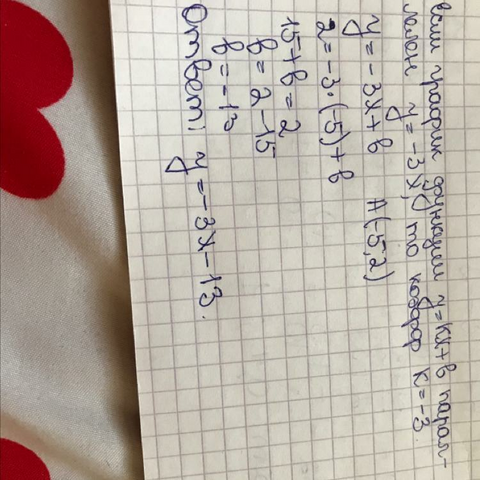 если график функции y=kx+b парал-
лелен y=-3x, то коэфф k=-3.
y=-3x+b A(-5;2)
2=-3·(-5)+b
15+b=2
b=2-15
b=-13
Ответ: y=-3x-13.